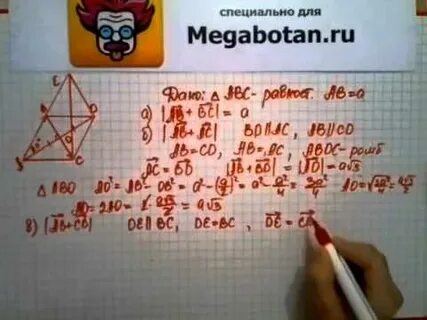 специально для
Megabotan.ru
Дано: △ ABC - равност. AB=a
а) |AB + BC| = a
б) |AB + AC|   BD∥AC, AB∥CD
AB=CD, AB=AC, ABDC-ромб
AC = BD   |AB+BD| = |AD| = a√3
△ ABO   AO²= AB² - OB² = a² - (a/2)² = a² - a²/4 = 3a²/4   AO = √3a²/4 = a√3/2
AD = 2AO = 2 a√3/2 = a√3
в) |AB+CB|   DE∥BC, DE=BC, DE = CB